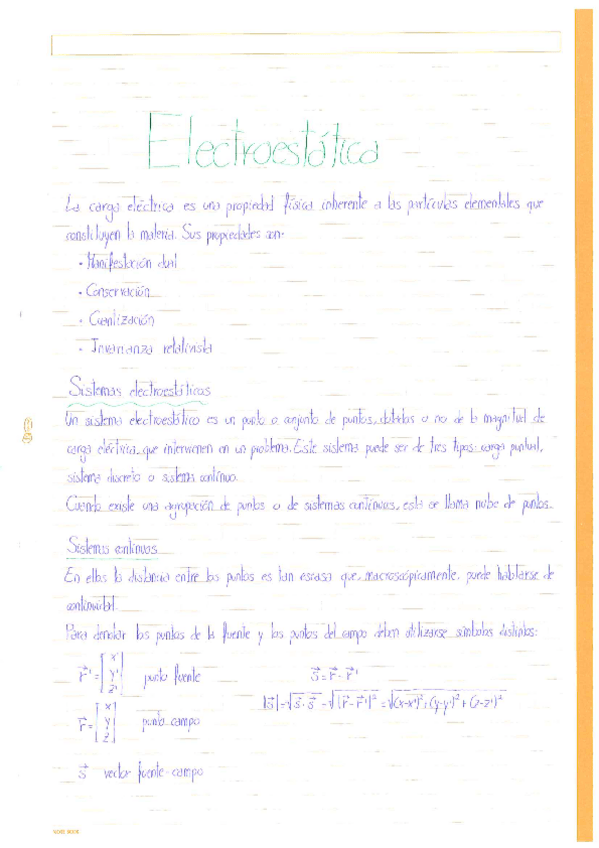 Electroestática
La carga eléctrica es una propiedad física inherente a las partículas elementales que
constituyen la materia. Sus propiedades son:
· Manifestación dual
· Conservación
· Cuantización
· Invarianza relativista
Sistemas electroestáticos
Un sistema electroestático es un punto o conjunto de puntos, dotados o no de la magnitud de
carga eléctrica, que intervienen en un problema. Este sistema puede ser de tres tipos: carga puntual,
sistema discreto o sistema continuo.
Cuando existe una agrupación de puntos o de sistemas continuos, esta se llama nube de puntos.
Sistemas continuos
En ellos la distancia entre los puntos es tan escasa que, macroscópicamente, puede hablarse de
continuidad.
Para denotar los puntos de la fuente y los puntos del campo deben utilizarse símbolos distintos:
r⃗' = [x' y' z'] punto fuente s⃗ = r⃗ - r⃗'
r⃗ = [x y z] punto campo |s⃗| = √s⃗·s⃗ = √|r⃗-r⃗'|² = √(x-x')²+(y-y')²+(z-z')²
s⃗ vector fuente-campo